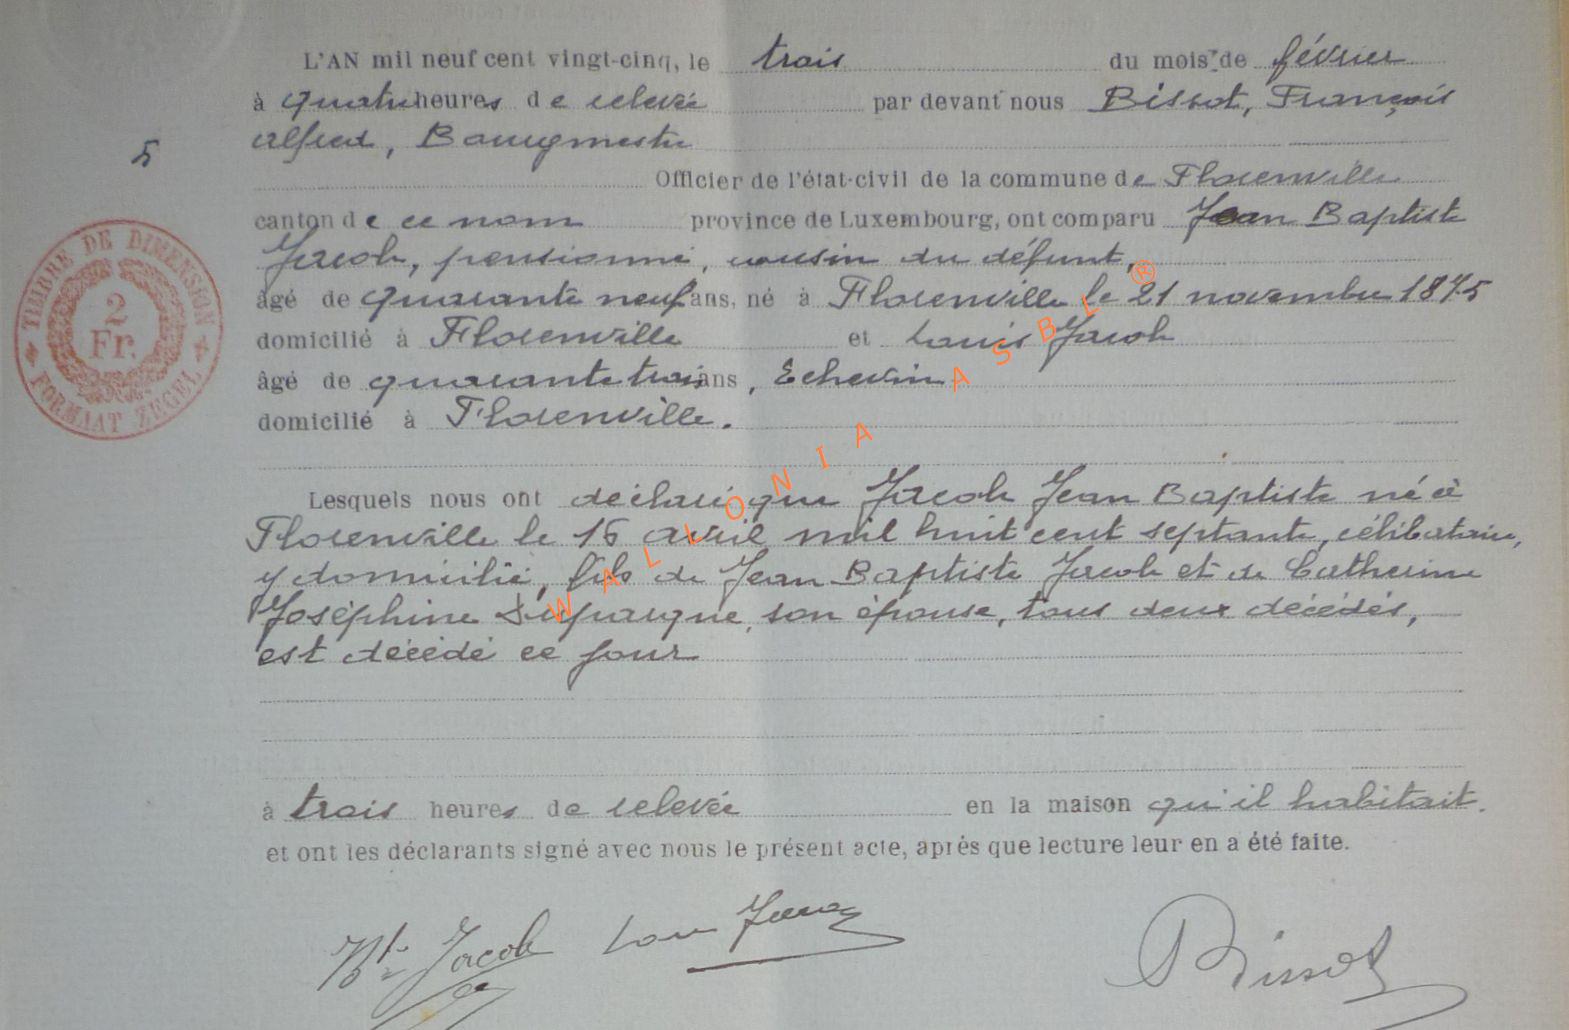 L'AN mil neuf cent vingt-cinq, le trois du mois de février
à quatre heures de relevée par devant nous Bissot, François
Alfred, Bourgmestre
5
Officier de l'état-civil de la commune de Florenville
canton de ce nom province de Luxembourg, ont comparu Jean Baptiste
Jacob, pensionné, cousin du défunt,
âgé de quarante neuf ans, né à Florenville le 21 novembre 1875
domicilié à Florenville et Louis Jacob
âgé de quarante trois ans, Echevin
domicilié à Florenville.
TIMBRE DE DIMENSION
2
Fr.
FORMAAT ZEGEL
Lesquels nous ont déclaré que Jacob Jean Baptiste né à
Florenville le 16 avril mil huit cent septante, célibataire,
y domicilié, fils de Jean Baptiste Jacob et de Catherine
Joséphine son épouse, tous deux décédés,
est décédé ce jour
à trois heures de relevée en la maison qu'il habitait.
et ont les déclarants signé avec nous le présent acte, après que lecture leur en a été faite.
Bte Jacob Louis Jacob Bissot
WALLONIA ASBL ®